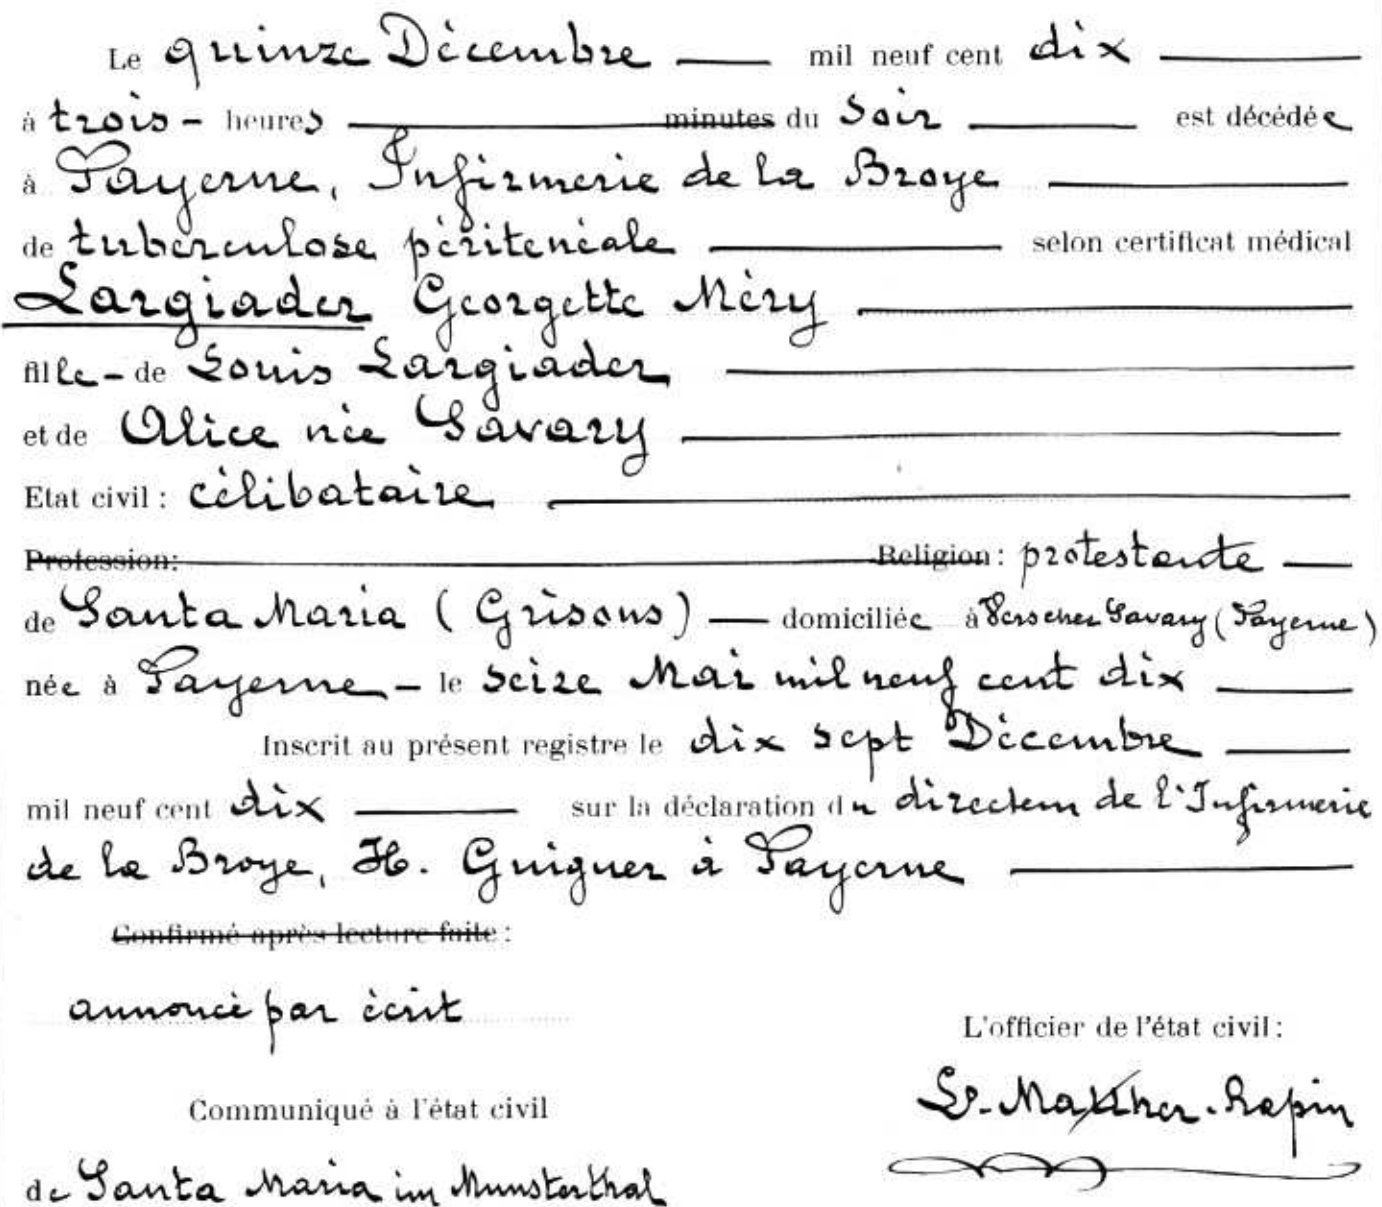 Le quinze Décembre mil neuf cent dix
à trois - heures minutes du soir est décédée
à Payerne, Infirmerie de la Broye
de tuberculose péritenéale selon certificat médical
Largiader Georgette Méry
fille - de Louis Largiader
et de Alice née Savary
Etat civil : célibataire
Profession: Religion : protestante
de Santa Maria (Grisons) domiciliée à Savary (Payerne)
née à Payerne - le seize Mai mil neuf cent dix
Inscrit au présent registre le dix sept Décembre
mil neuf cent dix sur la déclaration du directeur de l'Infirmerie
de la Broye, H. Guiguer à Payerne
Confirmé après lecture faite :
annoncé par écrit
L'officier de l'état civil :
Rapin
Communiqué à l'état civil
de Santa Maria im Munsterthal